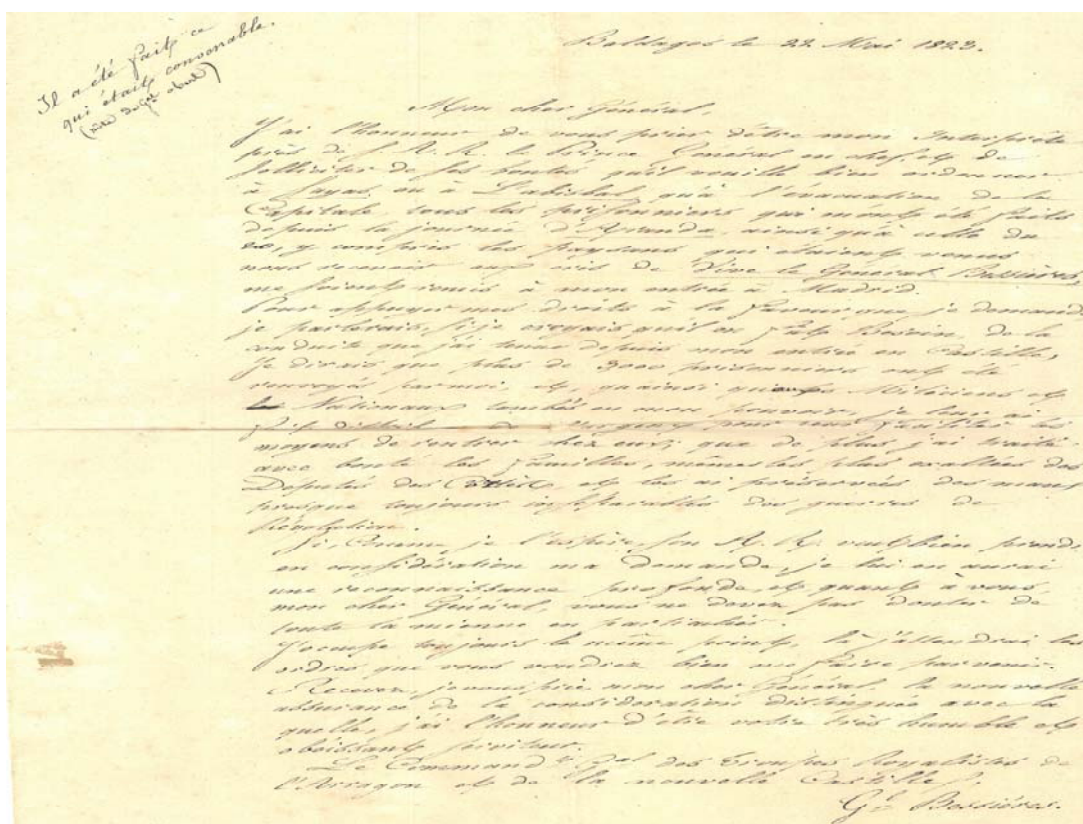 Il a été fait ce
qui était convenable.
Baldagos le 22 Mai 1823.
Mon cher Général,
J'ai l'honneur de vous prier d'être mon Interprète
près de S. A. R. le Prince Général en chef, et de
solliciter de ses bontés qu'il veuille bien ordonner
à Zayas, ou à L'abisbal, qu'à l'évacuation de la
Capitale, tous les prisonniers qui m'ont été faits
depuis la journée d'Aranda, ainsi qu'à celle du
20, y compris les paysans qui étaient venus
nous recevoir aux cris de Vive le Général Bessières,
me soient remis à mon entrée à Madrid.
Pour appuyer mes droits à la faveur que je demande
je parlerais, si je croyais qu'il en fut besoin, de la
conduite que j'ai tenue depuis mon entrée en Castille,
Je dirais que plus de 3000 prisonniers ont été
renvoyés par moi, et, qu'ainsi Miliciens et
Nationaux tombés en mon pouvoir, je leur ai
l'argent pour leur faciliter les
moyens de rentrer chez eux; que de plus j'ai traité
avec bonté les familles, mêmes les plus exaltées des
Députés des Cortès, et les ai préservées des maux
presque toujours inséparables des guerres de
Révolution.
Si, Comme je l'espère, son A. R. veut bien prendre
en considération ma demande, je lui en aurai
une reconnaissance profonde, et quant à vous,
mon cher Général, vous ne devez pas douter de
toute la mienne en particulier.
J'occupe toujours le même point, là j'attendrai les
ordres que vous voudrez bien me faire parvenir.
Recevez, je vous prie mon cher Général, la nouvelle
assurance de la considération distinguée avec la
quelle, j'ai l'honneur d'être votre très humble et
obéissant serviteur.
Le Commandt gal des Troupes Royalistes de
l'Arragon et de la nouvelle Castille,
Gl Bessières.